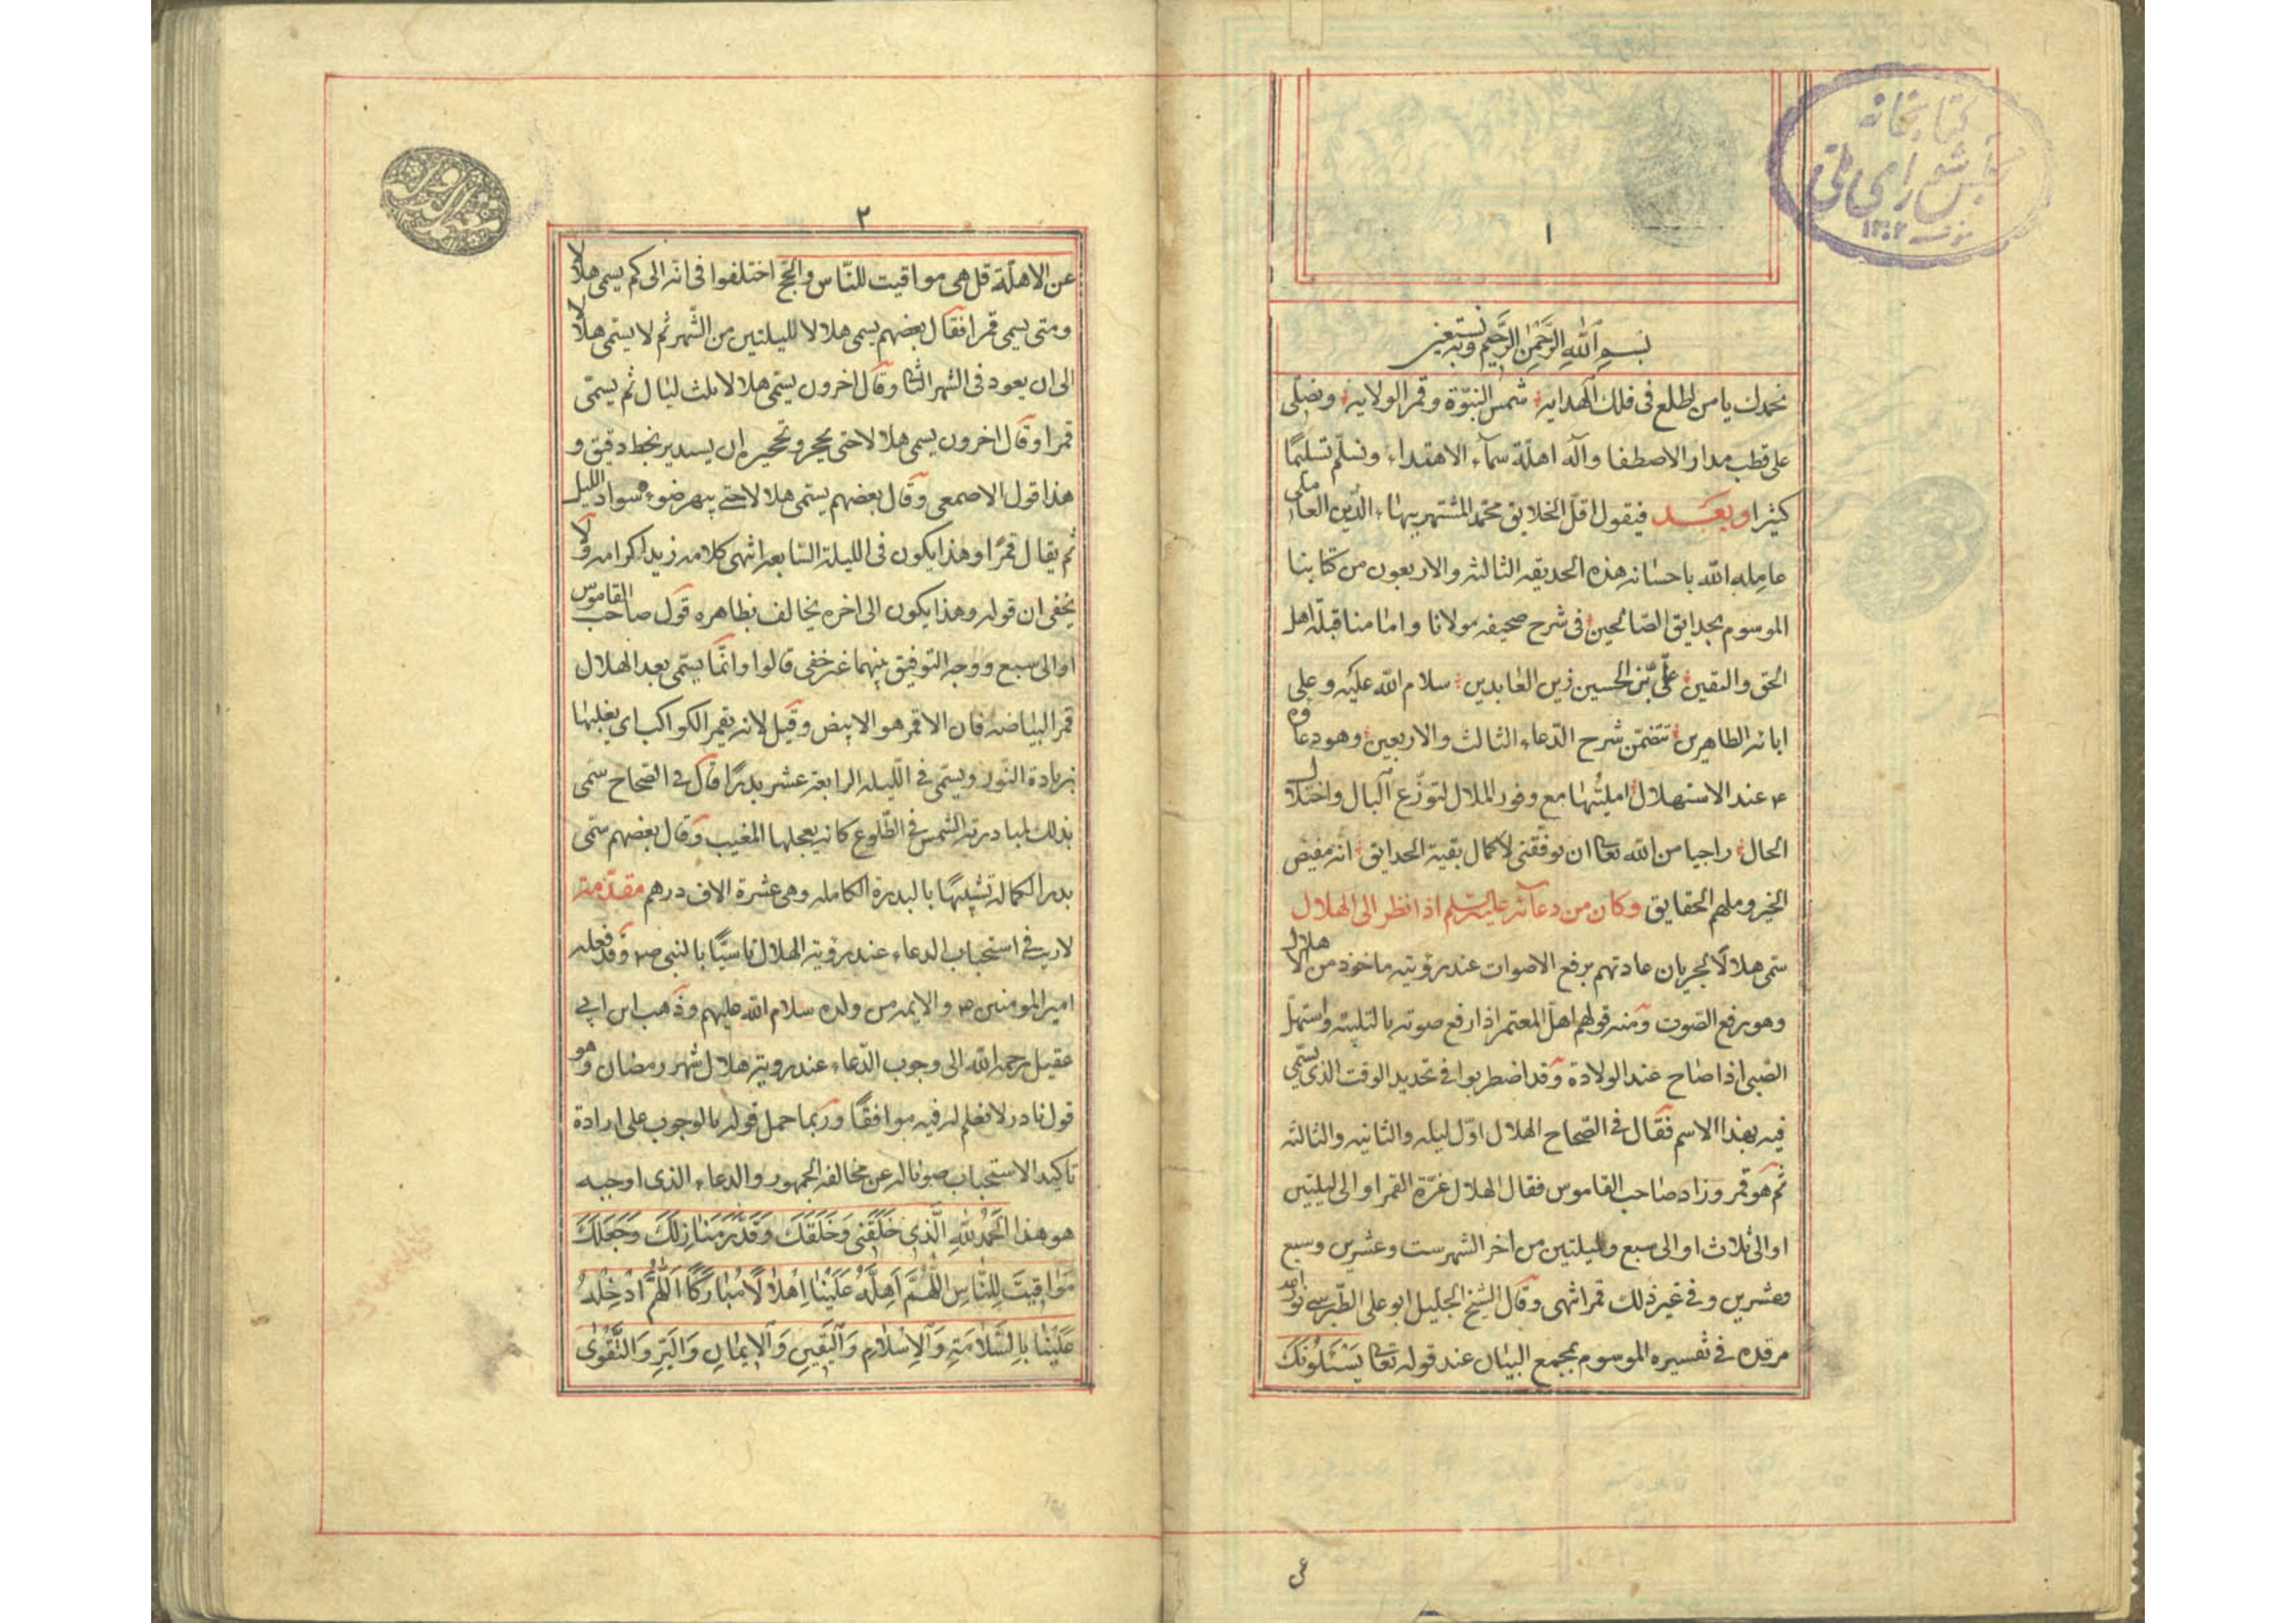 كتابخانه
مجلس شورای ملی
١٣٠٢
١
بسم الله الرحمن الرحيم وبه نستعين
نحمدك يا من اطلع فى فلك الهداية شمس النبوّة وقمر الولاية ونصلّى
على قطب مدار الاصطفا وآله اهلّة سمآء الاهتداء ونسلّم تسليمًا
كثيرا وبعـد فيقول اقلّ الخلايق محمّد المشتهر ببهاء الدّين العاملى
عامله الله باحسانه هذه الحديقه الثالثه والاربعون من كتابنا
الموسوم بحدايق الصّالحين فى شرح صحيفه مولانا وامامنا قبلة اهل
الحق واليقين علىّ بن الحسين زين العابدين سلام الله عليه وعلى
ابائه الطاهرين تتضمّن شرح الدّعاء الثالث والاربعين وهو دعاؤه
ع عند الاستهلال امليتُها مع وفور الملال لتوزّع البال واختلال
الحال راجيا من الله تعا ان يوفّقنى لاكمال بقية الحدايق انه مفيض
الخير وملهم الحقايق وكان من دعآئه عليه السلم اذا نظر الى الهلال
سمّى هلالًا لجريان عادتهم برفع الاصوات عند رؤيته ماخوذ من الاهلال
وهو رفع الصّوت ومنه قولهم اهلّ المعتمر اذا رفع صوته بالتلبيه واستهلّ
الصّبى اذا صاح عند الولادة وقد اضطربوا فى تحديد الوقت الذى يسمّى
فيه بهذا الاسم فقال فى الصّحاح الهلال اوّل ليله والثانيه والثالثه
ثم هو قمر وزاد صاحب القاموس فقال الهلال غرّة القمر او الى ليلتين
او الى ثلاث او الى سبع ولليلتين من اخر الشهر ست وعشرين وسبع
وعشرين وفى غير ذلك قمر انتهى وقال الشيخ الجليل ابو على الطّبرسى نور الله
مرقده فى تفسيره الموسوم بمجمع البيان عند قوله تعا يَسْئَلُونَكَ
٢
عن الاهلّة قل هى مواقيت للنّاس والحجّ اختلفوا فى انه الى كم يسمى هلالا
ومتى يسمى قمرا فقال بعضهم يسمى هلالا لليلتين من الشّهر ثم لا يسمّى هلالا
الى ان يعود فى الشهر الثانى وقال اخرون يسمّى هلالا ثلث ليال ثم يسمّى
قمرا وقال اخرون يسمى هلالا حتى يحجر وتحجيره ان يستدير بخط دقيق و
هذا قول الاصمعى وقال بعضهم يسمّى هلالا حتى يبهر ضوءه سواد الليل
ثم يقال قمرًا وهذا يكون فى الليلة السّابعه انتهى كلامه زيد اكرامه ولا
يخفى ان قوله وهذا يكون الى اخره يخالف بظاهره قول صاحب القاموس
او الى سبع ووجه التوفيق بينهما غير خفى قالوا وانّما يسمّى بعد الهلال
قمرا لبياضه فان الاقمر هو الابيض وقيل لانه يقمر الكواكب اى يغلبها
بزيادة النّور ويسمّى فى اللّيله الرابعة عشر بدرًا قال فى الصّحاح سمّى
بذلك لمبادرته الشمس فى الطّلوع كانه يعجلها المغيب وقال بعضهم سمّى
بدرا لكماله تشبيهًا بالبدرة الكامله وهى عشرة الاف درهم مقدّمة
لا ريب فى استحباب الدعاء عند رؤية الهلال تاسيًّا بالنبى ص وقد فعله
امير المومنين ع والائمه من ولده سلام الله عليهم وذهب ابن ابى
عقيل رحمه الله الى وجوب الدّعاء عند روية هلال شهر رمضان وهو
قول نادر لا نعلم له فيه موافقًا وربما حمل قوله بالوجوب على ارادة
تاكيد الاستحباب صونا له عن مخالفه الجمهور والدعاء الذى اوجبه
هو هذا اَلْحَمْدُ لِلّهِ الَّذِى خَلَقَنِى وَخَلَقَكَ وَقَدَّرَ مَنَازِلَكَ وَجَعَلَكَ
مَوَاقِيتَ لِلنَّاسِ اَللّهُمَّ اَهِلَّهُ عَلَيْنَا اِهْلَالًا مُبَارَكًا اَللّهُمَّ اَدْخِلْهُ
عَلَيْنَا بِالسَّلَامَةِ وَالْاِسْلَامِ وَالْيَقِينِ وَالْاِيمَانِ وَالْبِرِّ وَالتَّقْوٰى
عن